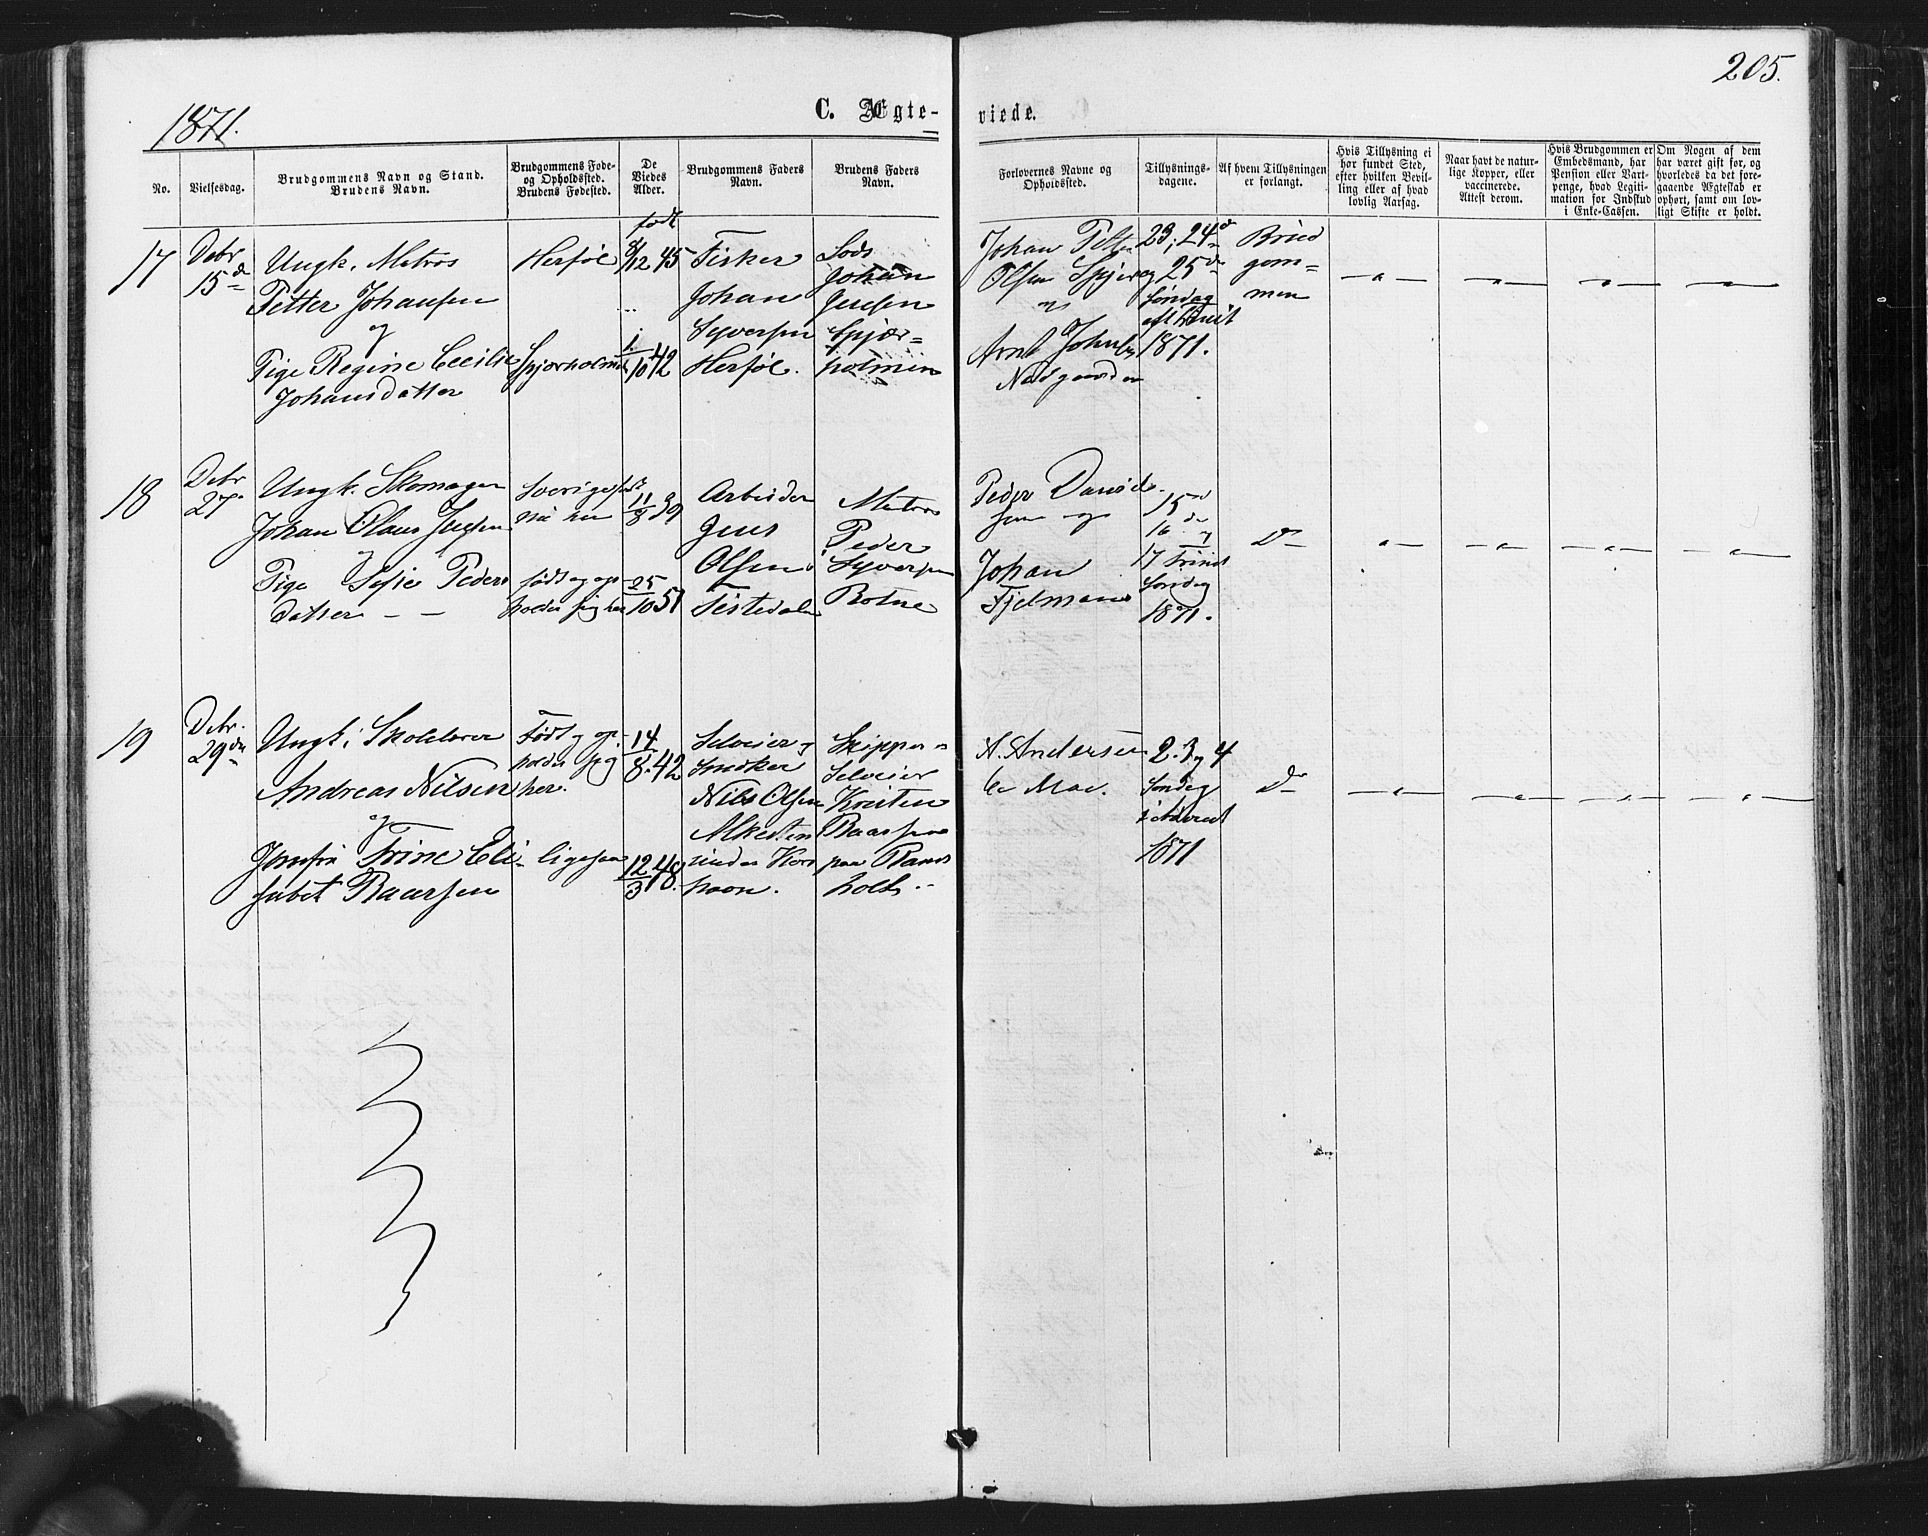 205.
1871.
C. Ægte-
viede.
No.
Vielsesdag.
Brudgommens Navn og Stand.
Brudens Navn.
Brudgommens Føde-
og Opholdssted.
Brudens Fødested.
De
Viedes
Alder.
Brudgommens Faders
Navn.
Brudens Faders
Navn.
Forlovernes Navne og
Opholdssted.
Tillysnings-
dagene.
Af hvem Tillysningen
er forlangt.
Hvis Tillysning ei
har fundet Sted,
efter hvilken Bevil-
ling eller af hvad
lovlig Aarsag.
Naar havt de natur-
lige Kopper, eller
vaccinerede.
Attest derom.
Hvis Brudgommen er
Embedsmand, har
Pension eller Vart-
penge, hvad Legiti-
mation for Indskud
i Enke-Cassen.
Om Nogen af dem
har været gift før, og
hvorledes da det fore-
gaaende Ægteskab er
ophørt, samt om lov-
ligt Skifte er holdt.
17
Debr
15de
Ungk. Matros
Petter Johansen
og
Pige Regine Cecilie
Johansdatter
Herføl
Spjærholmen
født
8/12 45
1/10 42
Fisker
Johan
Syversen
Herføl.
Lods
Johan
Jensen
Spjær-
holmen
Johan Petter
Olsen Spjær
og
Arnt Johnsen
Nordgaarden
23, 24de
og 25de
Søndag
eft Trinit
1871.
Brud
gom-
men
18
Debr
27
Ungk. Skomager
Johan Claus Jensen
og
Pige Sofie Peders
datter
Sverige født
nu her
født og op-
holder sig her
11/8 39
25/10 51
Arbeider
Jens
Olsen
Tistedalen
Matros
Peder
Syversen
Botne
Peder David-
sen og
Johan
Fjelmann
15de
16de og
17 Trinit
Søndag
1871.
Do
19
Debr.
29de
Ungk. Skolelærer
Andreas Nilsen
og
Jomfru Trine Eli-
sabet Baarsen
Født og op-
holder sig
her.
ligesaa
14/8 42
12/3 48.
Selveier og
Snedker
Nils Olsen
Alkesten
under Kors
havn.
Skipper og
Selveier
Kristen
Baarsen
paa Rands
holt
A. Andersen
C. Moe.
2. 3 og 4
Søndag
i Advent
1871
Do